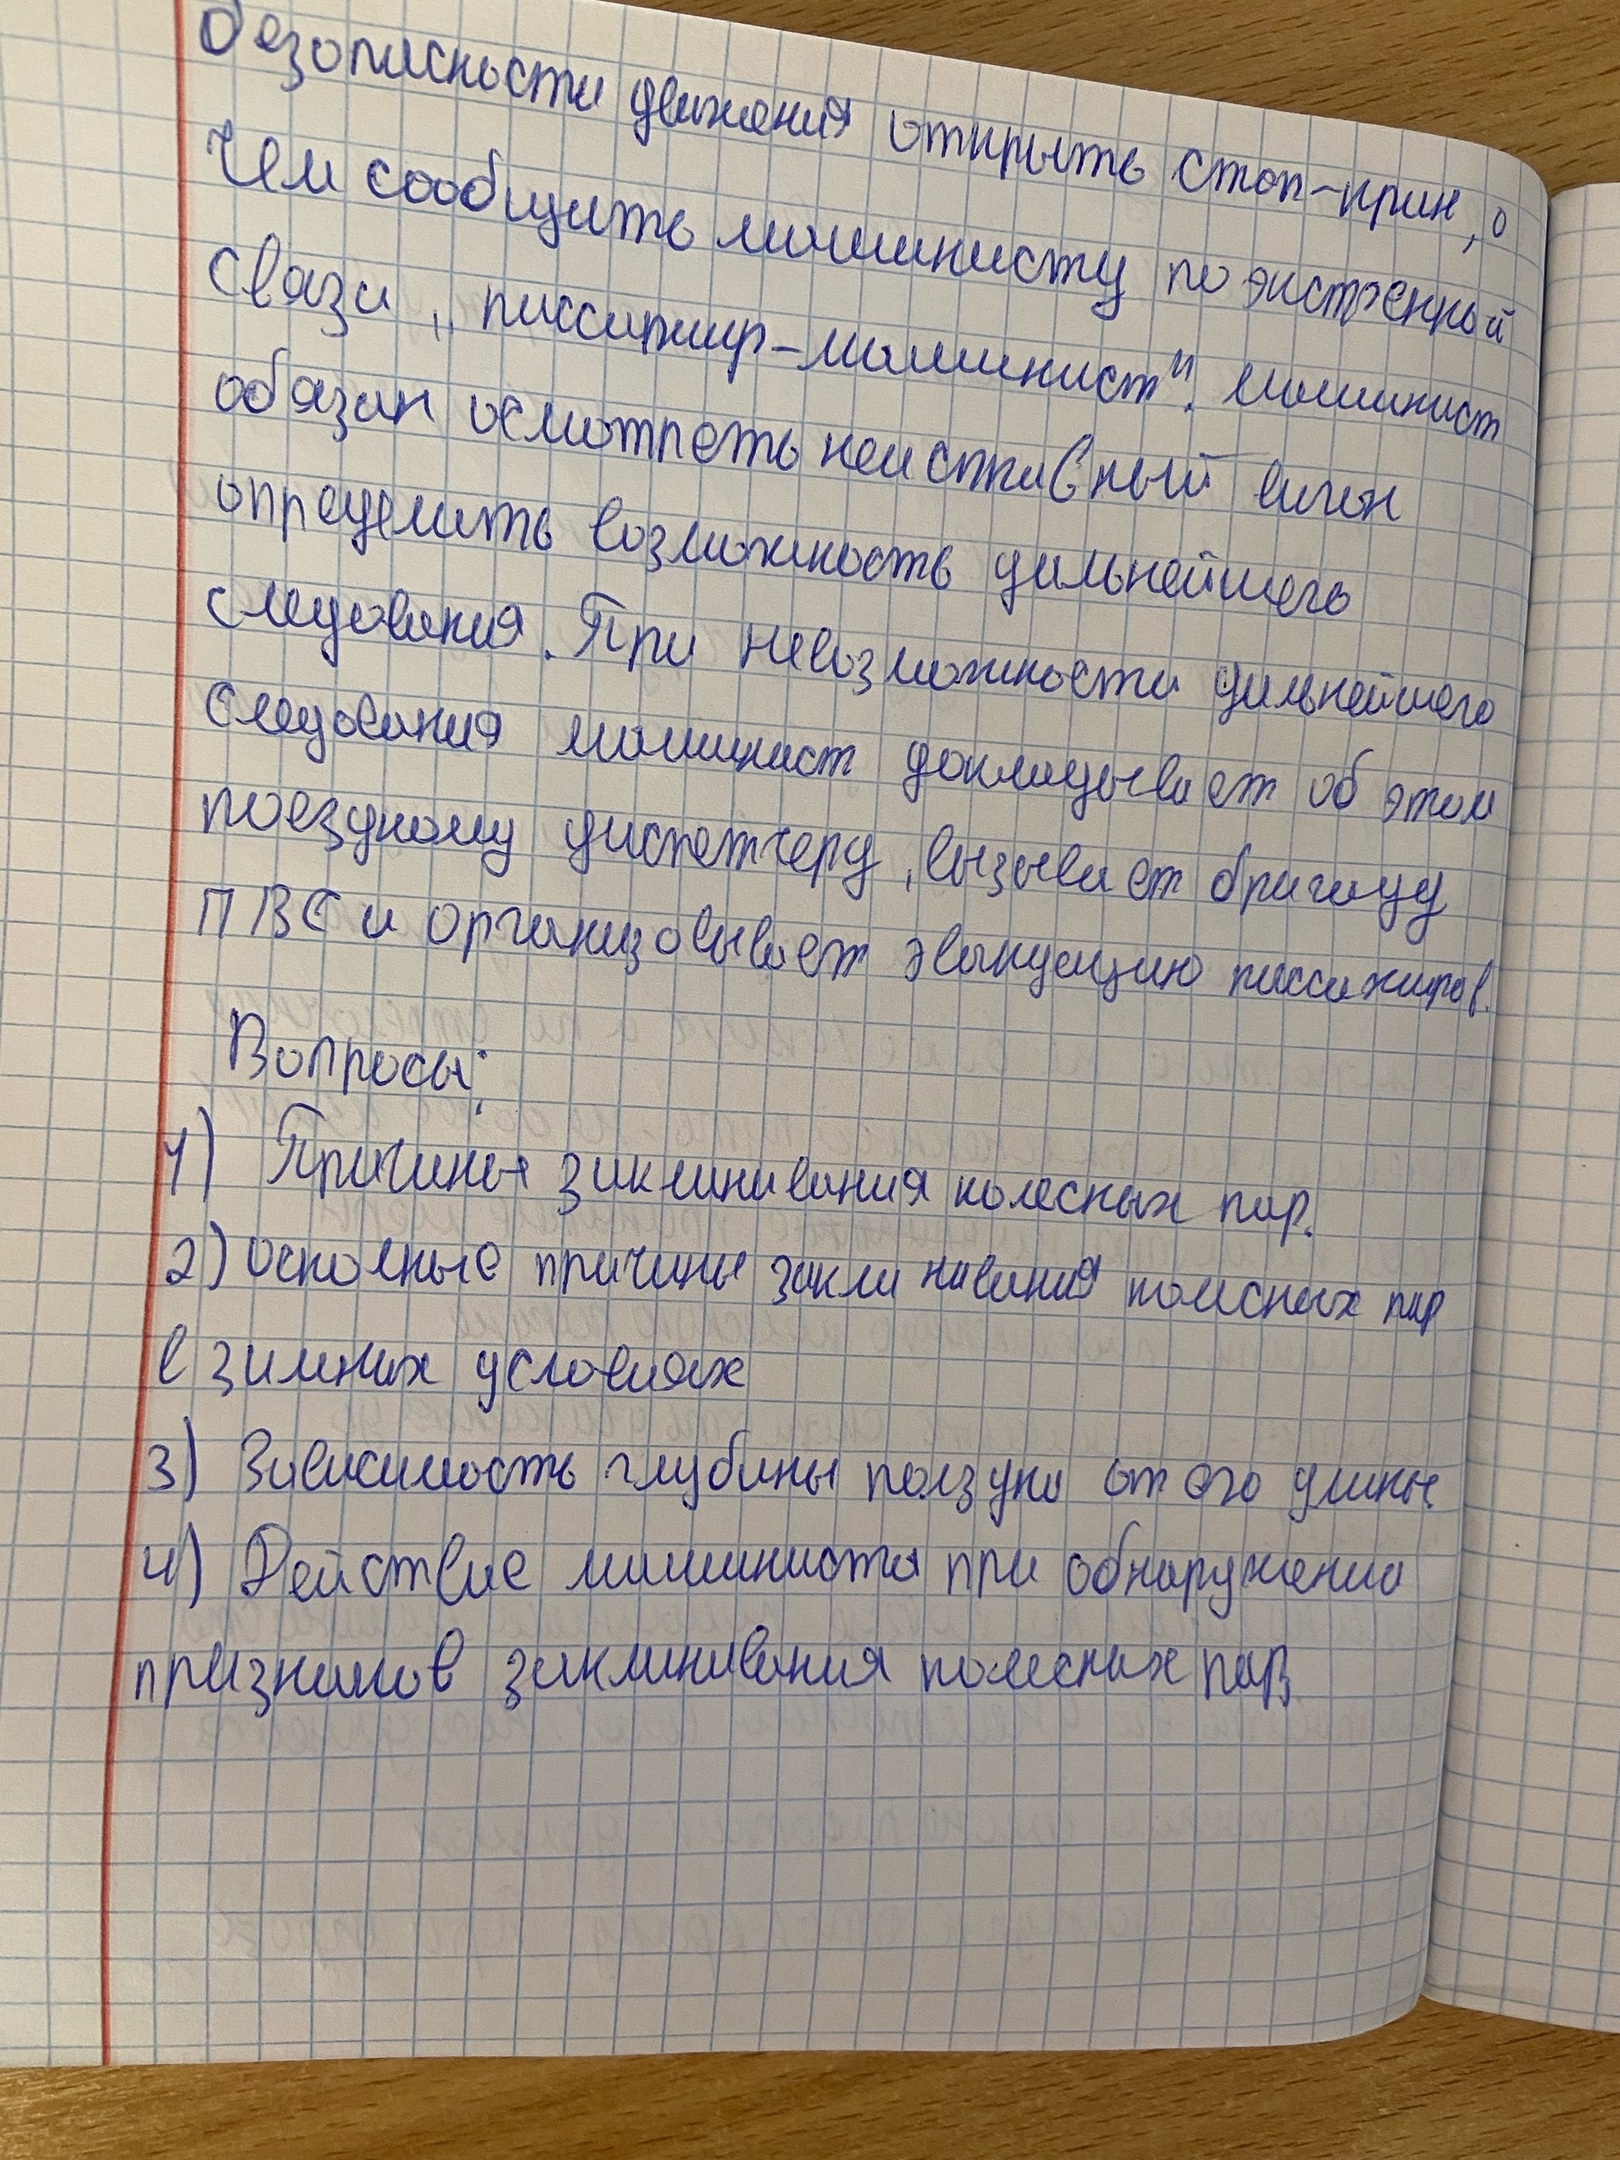 безопасности движения открыть стоп-кран, о
чем сообщить машинисту по экстренной
связи „пассажир-машинист". Машинист
обязан осмотреть неисправный вагон
определить возможность дальнейшего
следования. При невозможности дальнейшего
следования машинист докладывает об этом
поездному диспетчеру, вызывает бригаду
ПВС и организовывает эвакуацию пассажиров.
Вопросы:
1) Причины заклинивания колесных пар.
2) основные причины заклинивания колесных пар
в зимних условиях
3) Зависимость глубины ползуна от его длины.
4) Действие машиниста при обнаружении
признаков заклинивания колесных пар